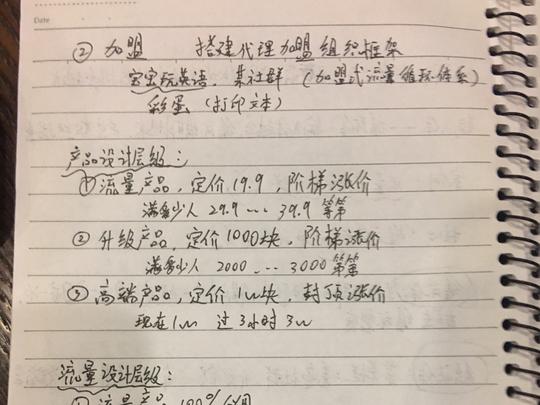 Date
② 加盟 搭建代理加盟组织框架
宝宝玩英语,某社群(加盟式流量循环体系)
彩蛋(打印文本)
产品设计层级:
① 流量产品,定价19.9,阶梯涨价
满多少人 29.9 … 39.9 等等
② 升级产品,定价1000块,阶梯涨价
满多少人 2000 … 3000 等等
③ 高端产品,定价1w块,封顶涨价
现在1w 过3小时3w
流量设计层级:
① 流量产品 100%